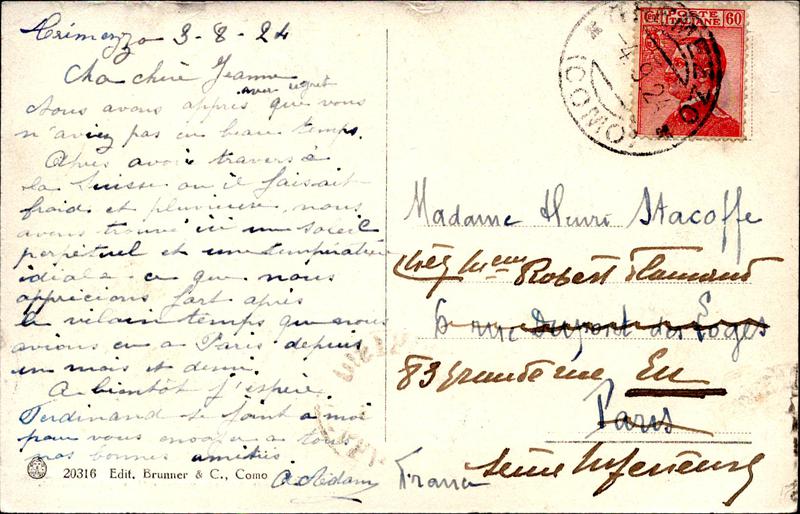 Tremezzo 3-8-24
Ma chère Jeanne
avec regret
Nous avons appris que vous
n'aviez pas eu beau temps.
Après avoir traversé
la Suisse ou il faisait
froid et pluvieux, nous
avons trouvé ici un soleil
perpétuel et une température
idéale ce que nous
apprécions fort après
le vilain temps que nous
avions eu à Paris depuis
un mois et demi.
A bientôt j'espère.
Ferdinand se joint a moi
pour vous envoyer a tous
nos bonnes amitiés.
20316 Edit. Brunner & C., Como
POSTE ITALIANE
Cent 60
TREMEZZO
(COMO)
4.9.24
Madame Henri Stacoffe
chez Mme Robert Flamand
6 rue Dupont des Loges
83 grande rue Eu
Paris
Seine Inferieure
France